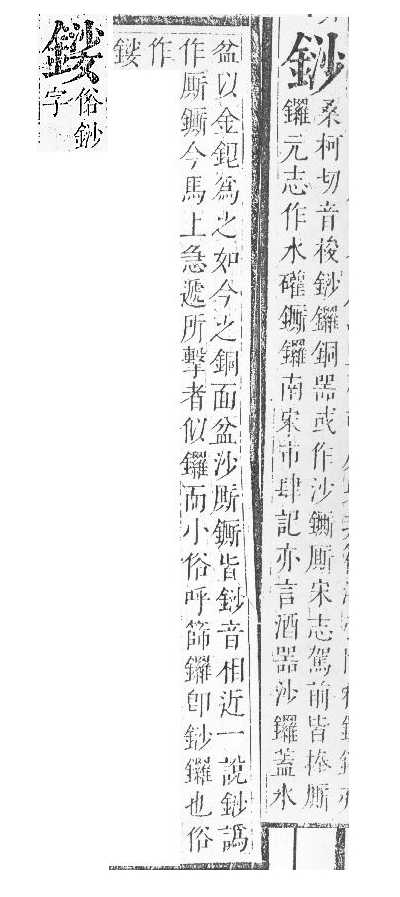 鈔
桑柯切音梭鈔鑼銅器或作沙鐁厮宋志駕前皆捧厮
鑼元志作水礶鐁鑼南宋市肆記亦言酒器沙鑼蓋水
盆以金鋜為之如今之銅面盆沙厮鐁皆鈔音相近一說鈔譌
作厮鐁今馬上急遞所擊者似鑼而小俗呼篩鑼卽鈔鑼也俗
作
鋖
鋖
俗鈔
字